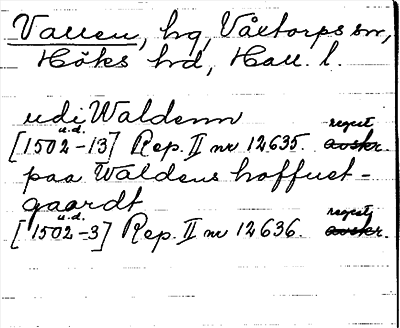 Vallen, hg, Våxtorps sn,
Höks hd, Hall. l.
udi Waldenn
u.d. regest
[1502-13] Rep. II nr 12635. avskr.
paa Waldens hoffuet-
gaardt
u.d. regest
[1502-3] Rep. II nr 12636. avskr.